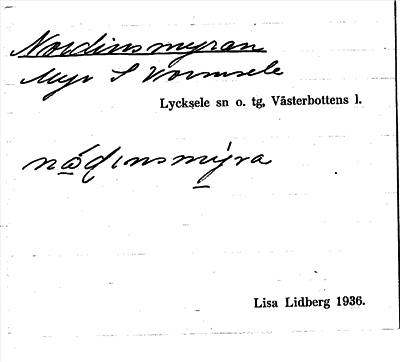 Nordinsmyran
Myr S Vormsele
Lycksele sn o. tg, Västerbottens l.
nǻɖınsmy̫ra
Lisa Lidberg 1936.